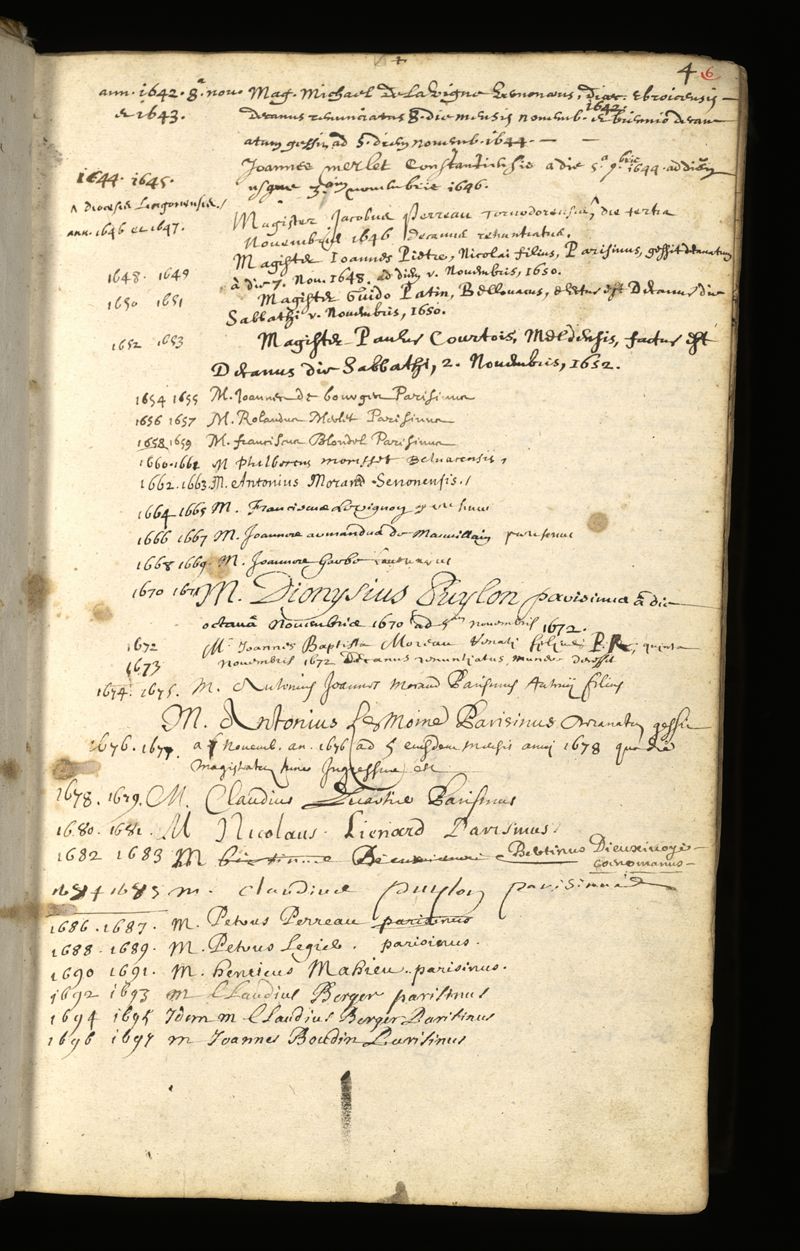 4 6
ann. 1642. 8.a nov. Mag. Michael De la Vigne Vernonæus, diœc. Ebroicensis
et 1643. decanus renunciatus 8. die mensis novemb. 1642. et biennio decan
atum gessit ad 5. diem novemb. 1644.
1644. 1645. Joannes Merlet Constantiensis a die 5.a 9bris 1644 ad diem
usque 3.am novembris 1646.
^ diocesis Lingonensis /
ann. 1646 et 1647. Magister Jacobus Perreau Tornodorensis ^ die tertia
Novembris 1646 decanus renuntiatus.
1648. 1649 Magister Ioannes Pietre, Nicolai filius, Parisinus, gessit decanatum
à die 7. Nov. 1648. ad diem v. Novembris, 1650.
1650 1651 Magister Guido Patin, Bellovacus, electus est Decanus die
Sabbathi v. Novembris, 1650.
1652 1653 Magister Paulus Courtois, Meldensis, factus est
Decanus die Sabbathi, 2. Novembris, 1652.
1654 1655 M. Joannes de bourges Parisinus
1656 1657 M. Rolandus Merlet Parisinus
1658 1659 M. Franciscus Blondel Parisinus
1660. 1661 M Philbertus morisset Belnacensis,
1662. 1663 M. Antonius Morand Senonensis /
1664 1665 M. Franciscus Le Vignon parisinus
1666 1667 M. Joannes armandus de Mauvillain parisinus
1668 1669. M. Joannes Garbe
1670 1671 M. Dionysius Puylon parisinus à die
octavâ Novembris 1670 ad 5am novembris 1672.
1672 M. Joannes Baptista Moreau Renati filius P. R., quinta
1673 Novembris 1672 decanus renuntiatus munere decessit
1674. 1675. M. Antonius Joannes Morand Parisinus Antonij filius
M. Antonius Le Moine Parisinus Decanatum gessit
1676. 1677. a Novemb. an. 1676 ad 5 eiusdem mensis anni 1678 qua die
Magistratum hunc Ingressus est
1678. 1679. M. Claudius Quartier Parisinus
1680. 1681. M Nicolaus Lienard Parisinus
1682 1683 M Bertinus Dieuxivoye
cœnomanus
1684 1685 m. claudius puylon parisinus
1686. 1687. M. Petrus Perreau parisinus
1688. 1689. M. Petrus Legier. parisinus.
1690 1691. M. henricus Mahieu. parisinus.
1692 1693 m Claudius Berger parisinus
1694 1695 Idem m Claudius Berger Parisinus
1696 1697 m Joannes Boudin Parisinus